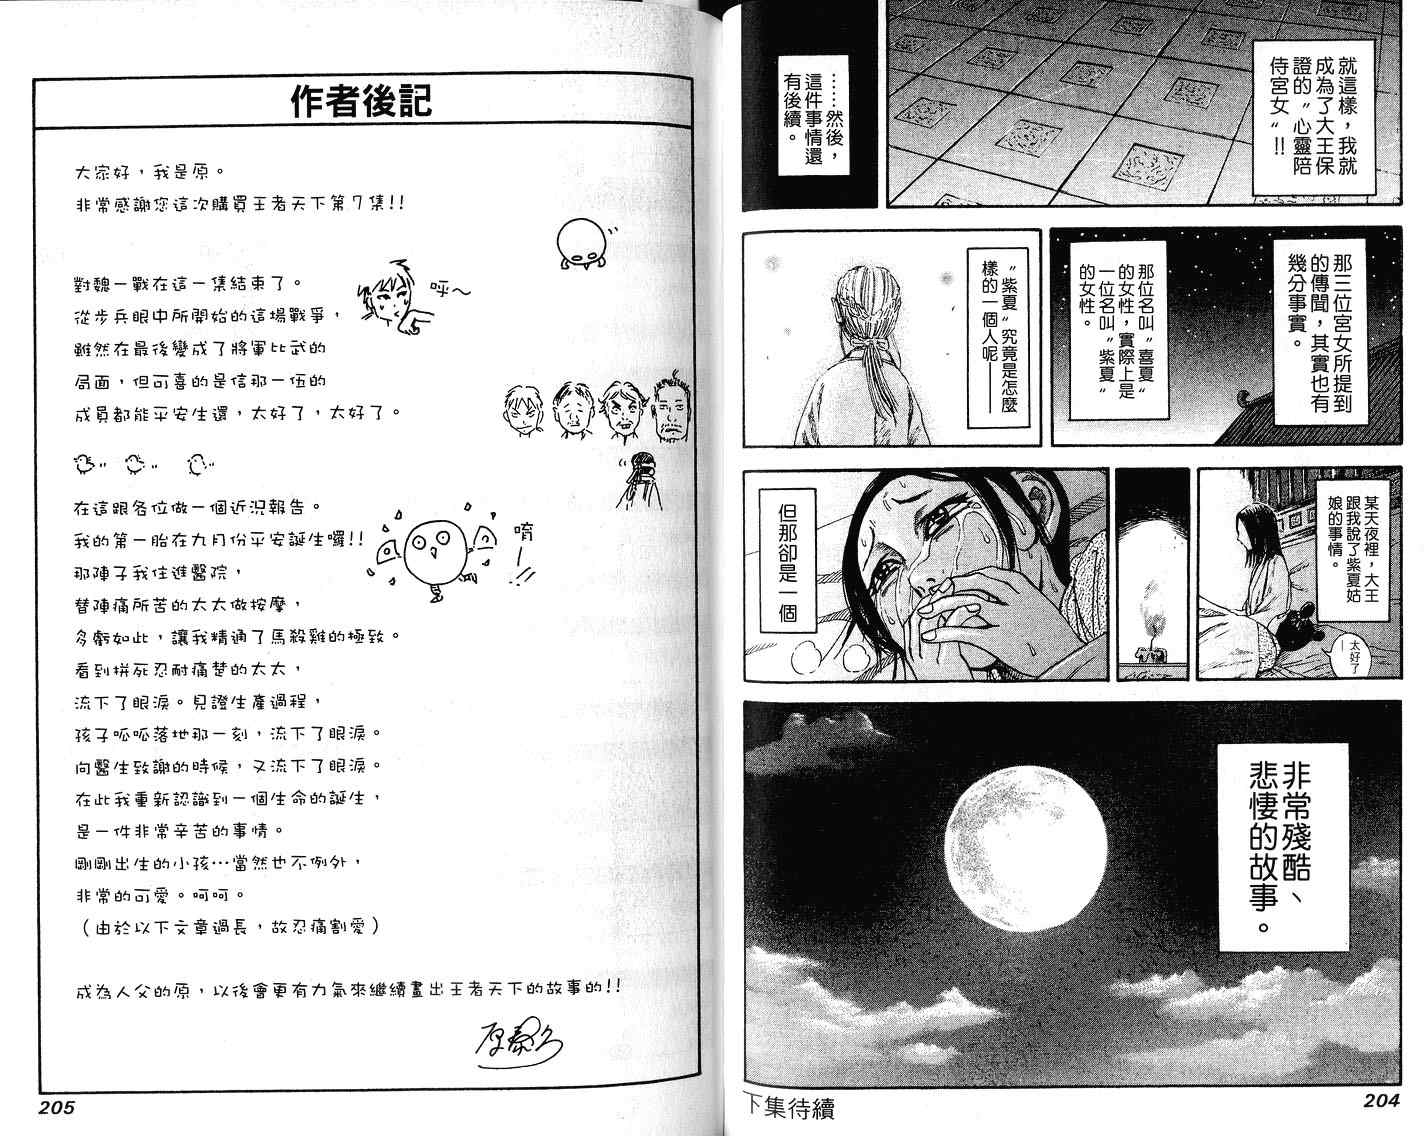 就這樣，我就
成為了大王保
證的〝心靈陪
侍宮女〞!!
……然後，
這件事情還
有後續。
那三位宮女所提到
的傳聞，其實也有
幾分事實。
那位名叫〝喜夏〞
的女性，實際上是
一位名叫〝紫夏〞
的女性。
〝紫夏〞究竟是怎麼
樣的一個人呢——
某天夜裡，大王
跟我說了紫夏姑
娘的事情。
太好了
—
但那卻是一個
非常殘酷、
悲悽的故事。
下集待續
204
作者後記
大家好，我是原。
非常感謝您這次購買王者天下第7集!!
對魏一戰在這一集結束了。
呼～
從步兵眼中所開始的這場戰爭，
雖然在最後變成了將軍比武的
局面，但可喜的是信那一伍的
成員都能平安生還，太好了，太好了。
在這跟各位做一個近況報告。
我的第一胎在九月份平安誕生囉!!
唷—!!
那陣子我住進醫院，
替陣痛所苦的太太做按摩，
多虧如此，讓我精通了馬殺雞的極致。
看到拼死忍耐痛楚的太太，
流下了眼淚。見證生產過程，
孩子呱呱落地那一刻，流下了眼淚。
向醫生致謝的時候，又流下了眼淚。
在此我重新認識到一個生命的誕生，
是一件非常辛苦的事情。
剛剛出生的小孩…當然也不例外，
非常的可愛。呵呵。
（由於以下文章過長，故忍痛割愛）
成為人父的原，以後會更有力氣來繼續畫出王者天下的故事的!!
原泰久
205